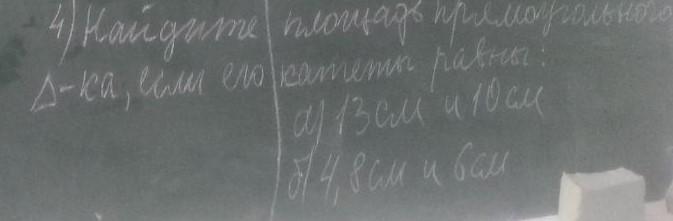 4) Найдите площадь прямоугольного
Δ-ка, если его катеты равны:
а) 13 см и 10 см
б) 4,8 см и 6 см